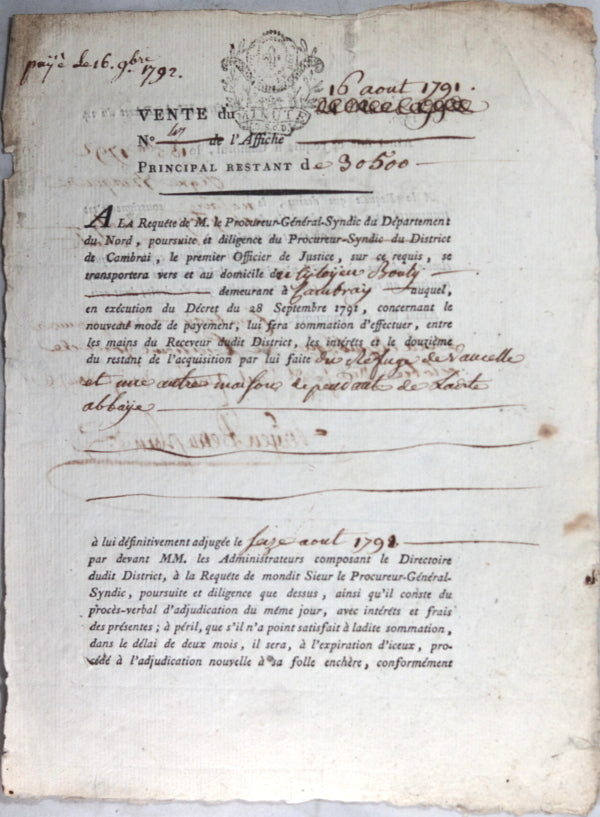 payé le 16. 9bre
1792.
16 aout 1791.
VENTE du
MINUTE
N.o 47 de l'Affiche
PRINCIPAL RESTANT de 30500
A LA Requête de M. le Procureur-Général-Syndic du Département
du Nord, poursuite et diligence du Procureur-Syndic du District
de Cambrai, le premier Officier de Justice, sur ce requis, se
transportera vers et au domicile de Citoyen Bouly
demeurant à Cambray auquel,
en exécution du Décret du 28 Septembre 1791, concernant le
nouveau mode de payement, lui fera sommation d'effectuer, entre
les mains du Receveur dudit District, les intérêts et le douzième
du restant de l'acquisition par lui faite du Refuge de Vaucelle
et une autre maison dependante de Ladte
abbaÿe
à lui définitivement adjugée le seize aout 1791
par devant MM. les Administrateurs composant le Directoire
dudit District, à la Requête de mondit Sieur le Procureur-Général-
Syndic, poursuite et diligence que dessus, ainsi qu'il conste du
procès-verbal d'adjudication du même jour, avec intérêts et frais
des présentes ; à péril, que s'il n'a point satisfait à ladite sommation,
dans le délai de deux mois, il sera, à l'expiration d'iceux, pro-
cédé à l'adjudication nouvelle à sa folle enchère, conformément